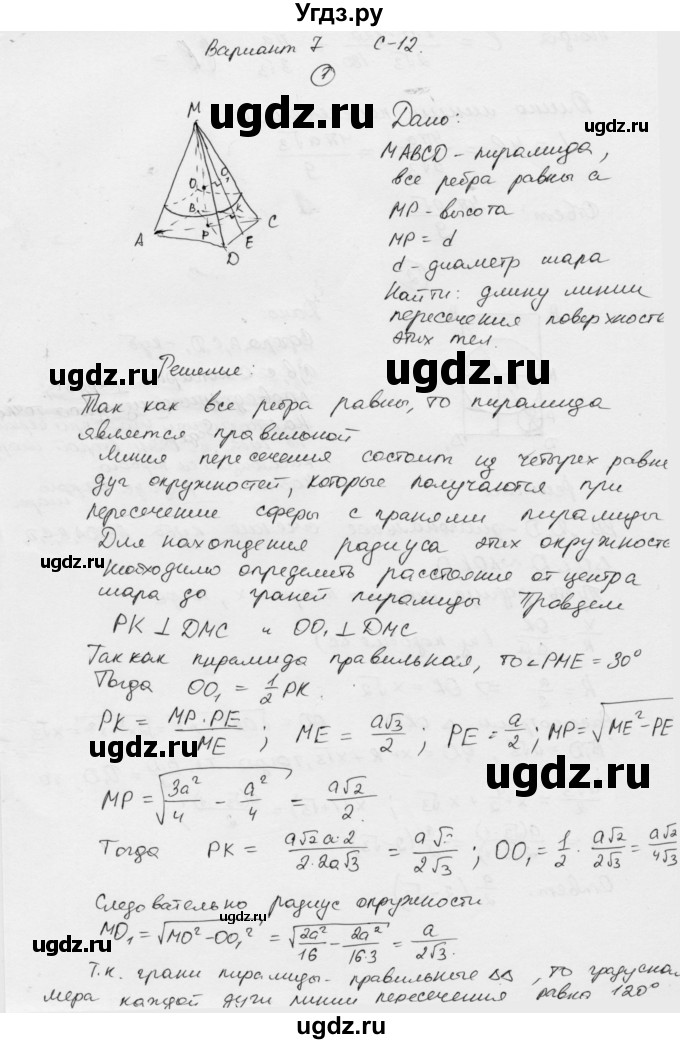 Угдз.ру
Вариант 7 С-12.
1
Дано:
MABCD - пирамида,
все ребра равны a
MP - высота
MP = d
d - диаметр шара
Найти: длину линии
пересечения поверхносте
этих тел.
M
O
O₁
B
K
C
A
P
E
D
Решение:
Так как все ребра равны, то пирамида
является правильной
Линия пересечения состоит из четырех равне
дуг окружностей, которые получаются при
пересечение сферы с гранями пирамиды
Для нахождения радиуса этих окружносте
необходимо определить расстояние от центра
шара до граней пирамиды Проведем
PK ⊥ DMC и OO₁ ⊥ DMC
Так как пирамида правильная, то ∠PME = 30°
Тогда OO₁ = 1/2 PK.
PK = MP·PE/ME ; ME = a√3/2 ; PE = a/2 ; MP = √(ME² - PE
MP = √(3a²/4 - a²/4) = a√2/2.
Тогда PK = a√2 a·2/(2·2a√3) = a√2/(2√3) ; OO₁ = 1/2 · a√2/(2√3) = a√2/(4√3)
Следовательно радиус окружности
MO₁ = √(MO² - OO₁²) = √(2a²/16 - 2a²/(16·3)) = a/(2√3).
Т.к. грани пирамиды - правильные ΔΔ, то градусная
мера каждой дуги линии пересечения равна 120°
ugdz.ru
ugdz.ru
ugdz.ru
ugdz.ru
ugdz.ru
ugdz.ru
ugdz.ru
ugdz.ru
ugdz.ru
ugdz.ru
ugdz.ru
ugdz.ru
ugdz.ru
ugdz.ru